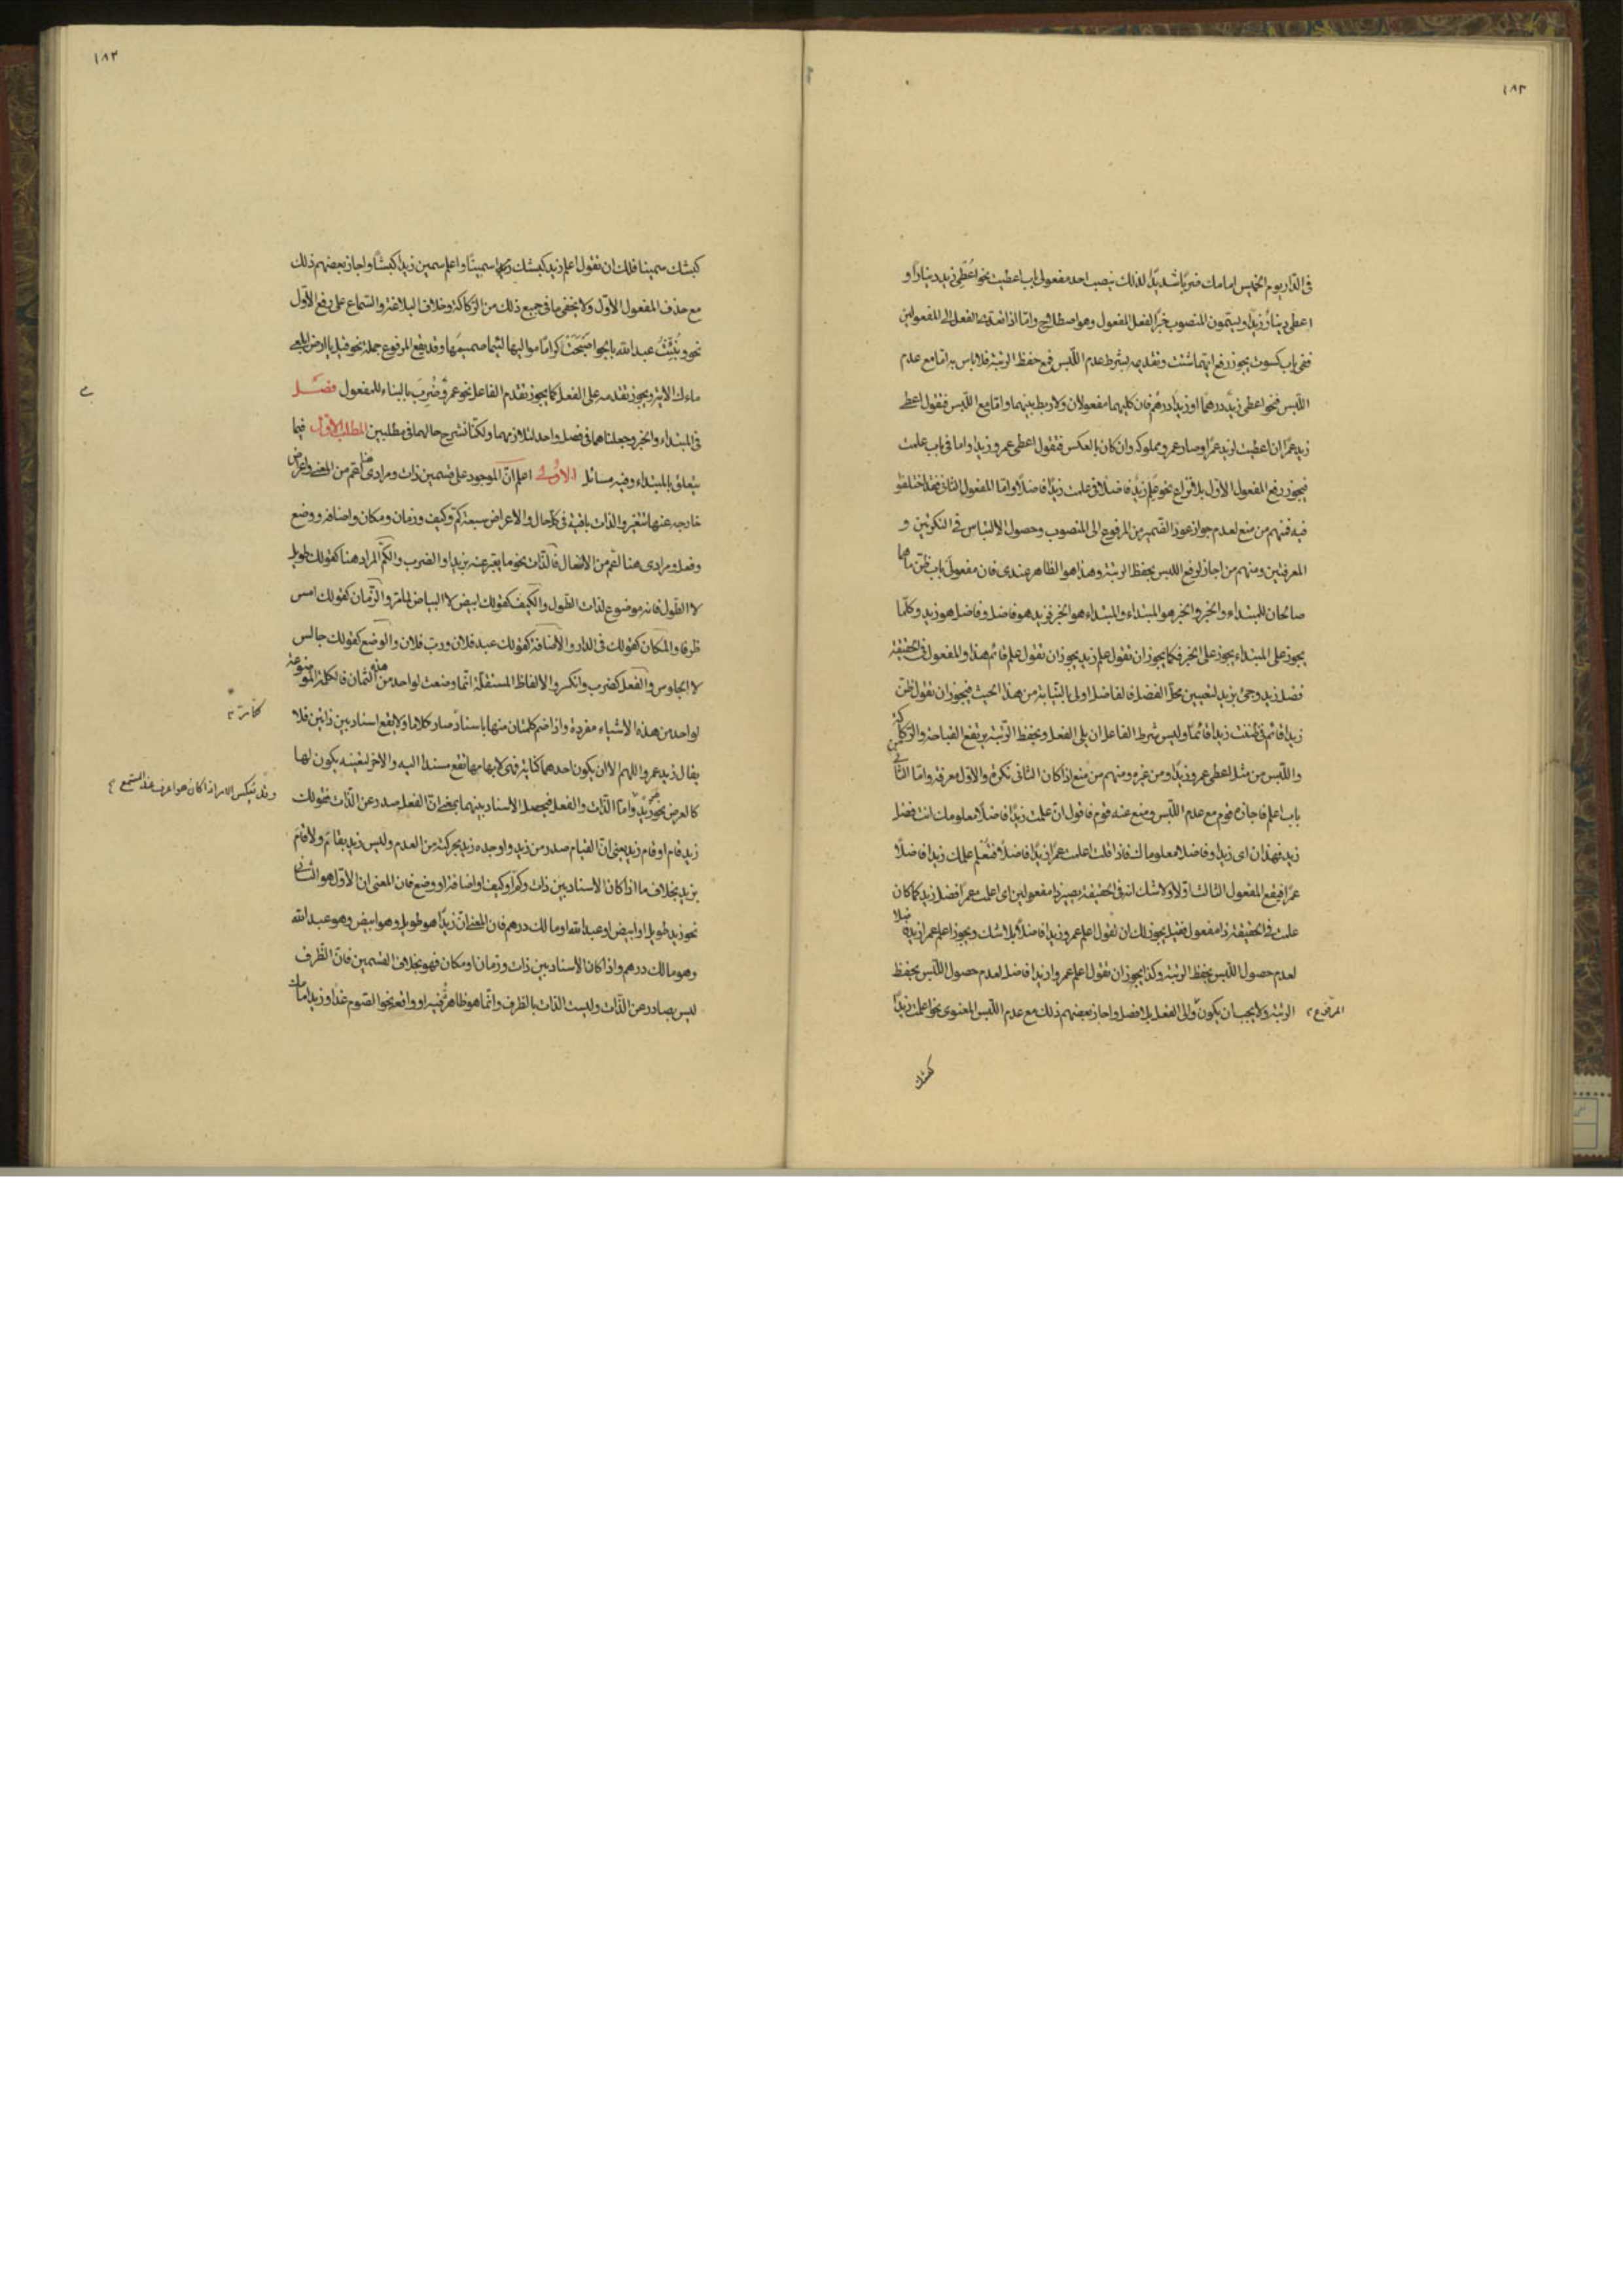 ١٨٣
فى الدّار يوم الخميس امامك ضربًا شديدًا لذلك ينصب احد مفعولى باب اعطيت نحو اُعْطِىَ زيد دينارًا و
اعطى دينارٌ زيدًا ويسمّون المنصوب خبرًا لفعل المفعول وهو اصطلاح وامّا اذا تعدى الفعل الى المفعولين
ففى باب كسوت يجوز رفع ايّهما شئت وتقديمه بشرط عدم اللّبس فمع حفظ الرتبة فلا باس به امّا مع عدم
اللّبس فنحو اعطى زيدٌ درهمًا او زيدًا درهم فان كليهما مفعولان ولا ربط بينهما وامّا مع اللّبس فتقول اعطى
زيد عمرًا ان اعطيت لزيد عمرًا وصار عمرو مملوكه وان كان بالعكس فتقول اعطى عمرو زيدًا واما فى باب علمت
فيجوز رفع المفعول الاوّل بلا نزاع نحو عُلِمَ زيدٌ فاضلًا فى علمت زيدًا فاضلًا وامّا المفعول الثانى فقد اختلفو
فيه فمنهم من منع لعدم جواز عود الضّمير من المرفوع الى المنصوب وحصول الالتباس فى النكرتين و
المعرفتين ومنهم من اجاز لرفع اللبس بحفظ الرتبة وهذا هو الظاهر عندى فان مفعولى باب ظنّ هما
صالحان للمبتداء والخبر والخبر هو المبتداء والمبتداء هو الخبر فزيد هو فاضل وفاضل هو زيد وكلّما
يجوز على المبتداء يجوز على الخبر فكما يجوز ان تقول علم زيد يجوز ان تقول علم قائم هذا والمفعول فى الحقيقة
فضل زيد وجئ بزيد لتعيين محلّ الفضل فالفاضل اولى بالنّيابة من هذا الحيث فيجوز ان تقول ظنّ
زيدًا قائم فى ظننت زيدًا قائمًا وليس شرط الفاعل ان يلى الفعل وبحفظ الرّتبة يرتفع القباحة والرّكاكة
واللّبس من مثل اعطى عمرو زيدًا ومن غيره ومنهم من منع اذا كان الثانى نكرة والاوّل معرفة وامّا الثّانى
باب اعلم فاجازه قوم مع عدم اللّبس ومنع عنه قوم فاقول انّ علمت زيدًا فاضلًا معلومك انت فضل
زيد فهذان اى زيدًا وفاضلًا معلوماك فاذا قلت اعلمت عمرًا زيدًا فاضلًا فتُعْلِم علمك زيدا فاضلًا
عمرًا فيقع المفعول الثالث اوّلًا ولا شك انه فى الحقيقة يصير ذا مفعولين اى اعلمت عمرًا فضل زيد كما كان
علمت فى الحقيقة ذا مفعول فقيل يجوز لك ان تقول اعلم عمرو زيدا فاضلًا بلا شك ويجوز اعلم عمرا زيد فاضلا
لعدم حصول اللّبس بحفظ الرتبة وكذا يجوز ان تقول اعلم عمروا زيدا فاضل لعدم حصول اللّبس بحفظ
الرتبة ولا يجب ان يكون والى الفعل بلا فصل واجاز بعضهم ذلك مع عدم اللّبس المعنوى نحو اعلمت زيدًا
المرفوع
كبشك
١٨٣
كبشك سمينا فلك ان تقول اعلم زيد كبشك سمينًا واعلم سمين زيدًا كبشًا واجاز بعضهم ذلك
مع حذف المفعول الاوّل ولا يخفى ما فى جميع ذلك من الركاكة وخلاف البلاغة والسّماع على رفع الاوّل
نحو ونُبِّئْتُ عبدالله بالجوّ اصبحت كرامًا مواليها لئيما صميمها وقد يقع المرفوع جملة نحو قيل يا ارض ابلعى
ماءك الاية ويجوز تقدمه على الفعل كما يجوز تقدم الفاعل نحو عمرو ضُرِبَ بالبناء للمفعول فصــل
فى المبتداء والخبر وجعلناهما فى فصل واحد لتلازمهما ولكنّا نشرح حالهما فى مطلبين المطلب الاوّل فيما
يتعلق بالمبتداء وفيه مسائل الاولى اعلم انّ الموجود على قسمين ذات ومرادى هنا اعم من المعنى واعراض
خارجه عنها تتغير والذات باقية فى كلّ حال والاعراض سبعة كمّ وكيف وزمان ومكان واضافة ووضع
وفعل ومرادى هنا اعم من الانفعال فالذّات نحو ما يعبر عنه بزيد او الضرب والكمّ المراد هنا كقولك طويل
لا الطّول فانه موضوع لذات الطّول والكيف كقولك ابيض لا البياض لما مرّ والزّمان كقولك امس
ظرفا والمكان كقولك فى الدار والاضافة كقولك عبد فلان وربّ فلان والوضع كقولك جالس
لا الجلوس والفعل كضرب وانكسر والالفاظ المستقلّة انّما وضعت لواحد من هذه الثمان فالكلمة الموضوعة
لواحد من هذه الاشياء مفردة واذا ضم كلمتان منها باسناد صار كلاما ولا يقع اسناد بين ذاتين فلا
يقال زيد عمرو اللهم الا ان يكون احدهما كناية فهى لابهامها تقع مسندا اليه والاخر لتعينه يكون لها
كالعرض نحو من زيد وامّا الذّات والفعل فيحصل الاسناد بينهما بمعنى انّ الفعل صدر عن الذّات نحو قولك
زيد قام او قام زيد يعنى انّ القيام صدر من زيد واوجده زيد بحركته من العدم وليس زيد بقائم ولا قام
بزيد بخلاف ما اذا كان الاسناد بين ذات وكمّ او كيف او اضافة او وضع فان المعنى ان الاوّل هو الثانى
نحو زيد طويل او ابيض او عبدالله او مالك درهم فان المعنى انّ زيدًا هو طويل وهو ابيض وهو عبدالله
وهو مالك درهم واذا كان الاسناد بين ذات وزمان او مكان فهو بخلاف القسمين فانّ الظّرف
ليس بصادر عن الذّات وليست الذات بالظرف وانّما هو ظاهر فيه او واقع نحو الصّوم غدًا وزيد امامك
وقد ينعكس الامر اذا كان هو اعرف عند المستمع